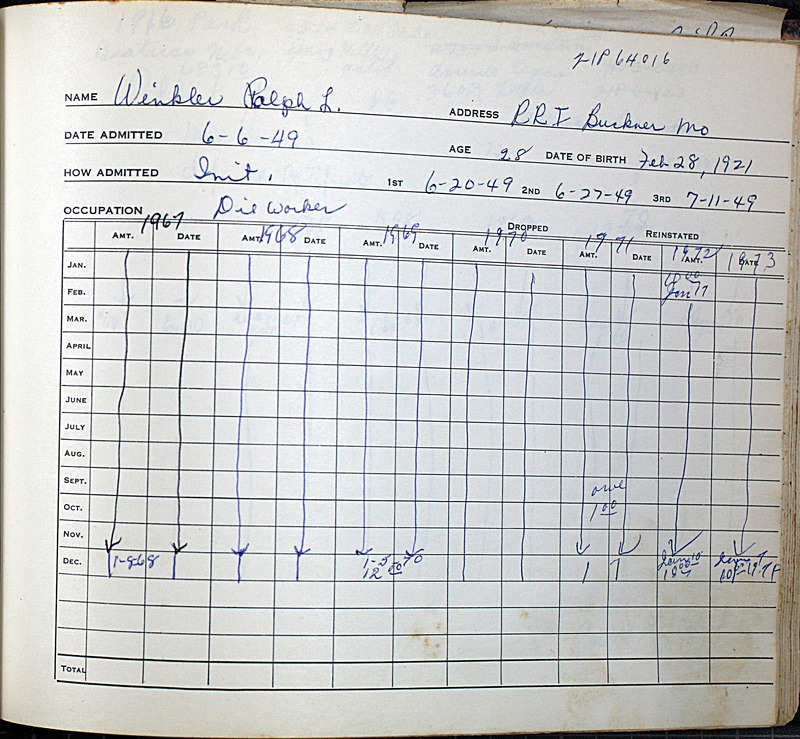 ZIP 64016
NAME Winkler Ralph L. ADDRESS R.R.I Buckner Mo
DATE ADMITTED 6-6-49 AGE 28 DATE OF BIRTH Feb 28, 1921
HOW ADMITTED Init. 1ST 6-20-49 2ND 6-27-49 3RD 7-11-49
OCCUPATION Die Worker DROPPED REINSTATED
1967 1968 1969 1970 1971 1972 1973
AMT. DATE AMT. DATE AMT. DATE AMT. DATE AMT. DATE AMT. DATE
JAN.
FEB. Jan 77
MAR.
APRIL
MAY
JUNE
JULY
AUG.
SEPT. owe
OCT. 1 00
NOV.
DEC. 1-8-68 1-5 70
12 00
TOTAL